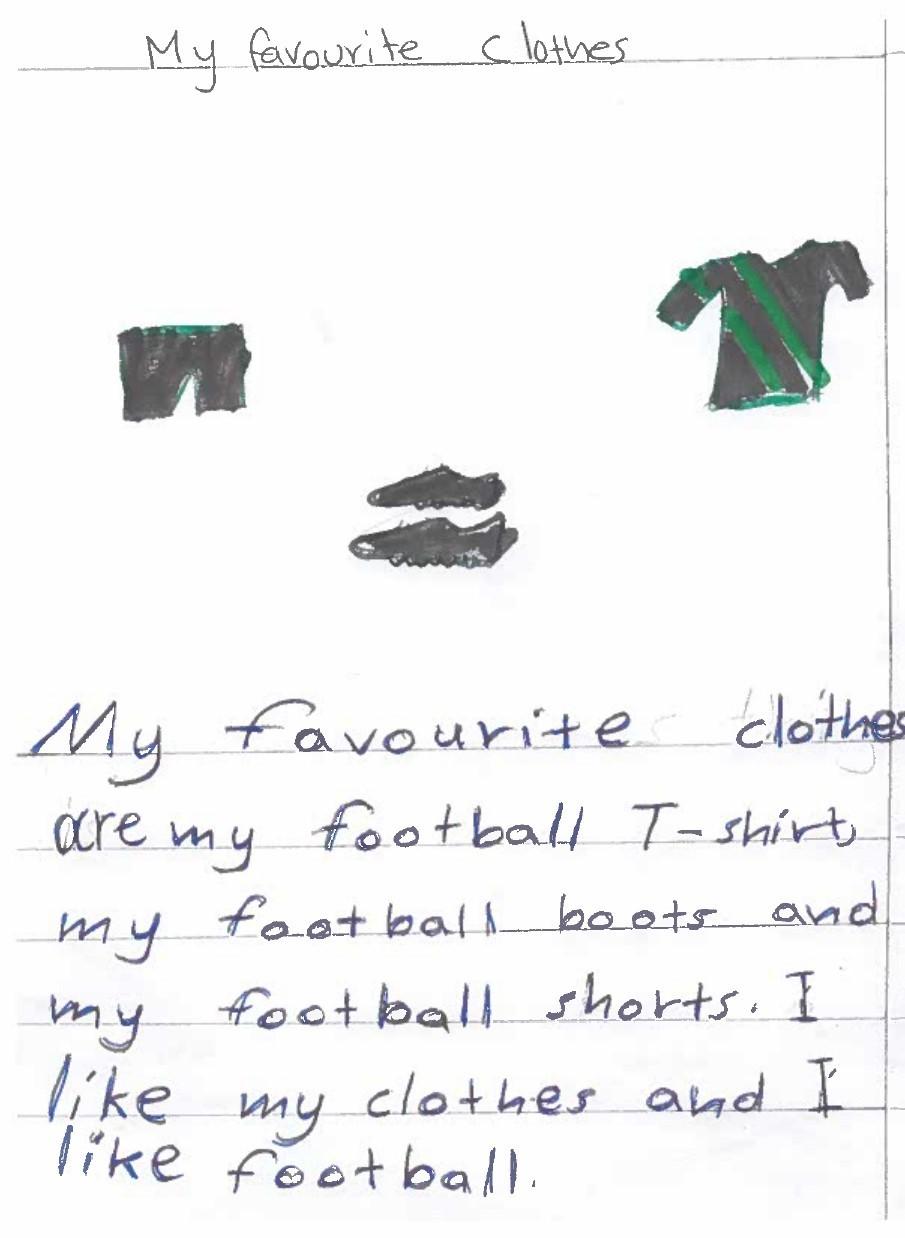 My favourite clothes
My favourite clothes
are my football T-shirt,
my football boots and
my football shorts. I
like my clothes and I
like football.